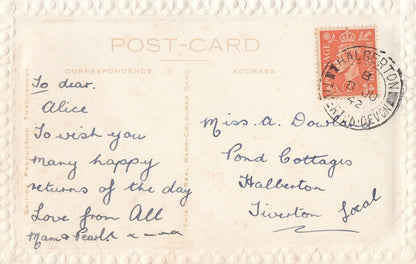 POST-CARD
CORRESPONDENCE
ADDRESS
BRITISH PRODUCTION THROUGHOUT.
THIS IS A REAL HAND-COLOURED CARD.
To dear.
Alice
To wish you
many happy
returns of the day
Love from All
Mam & Pearl. x
Miss. A.
Pond Cottages
Halberton
Tiverton Local
HALBERTON
TIVERTON. DEVON
42